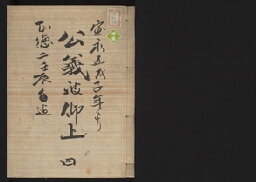 宝永五戊子年ゟ
公義被仰上 四
正徳二壬辰年迄